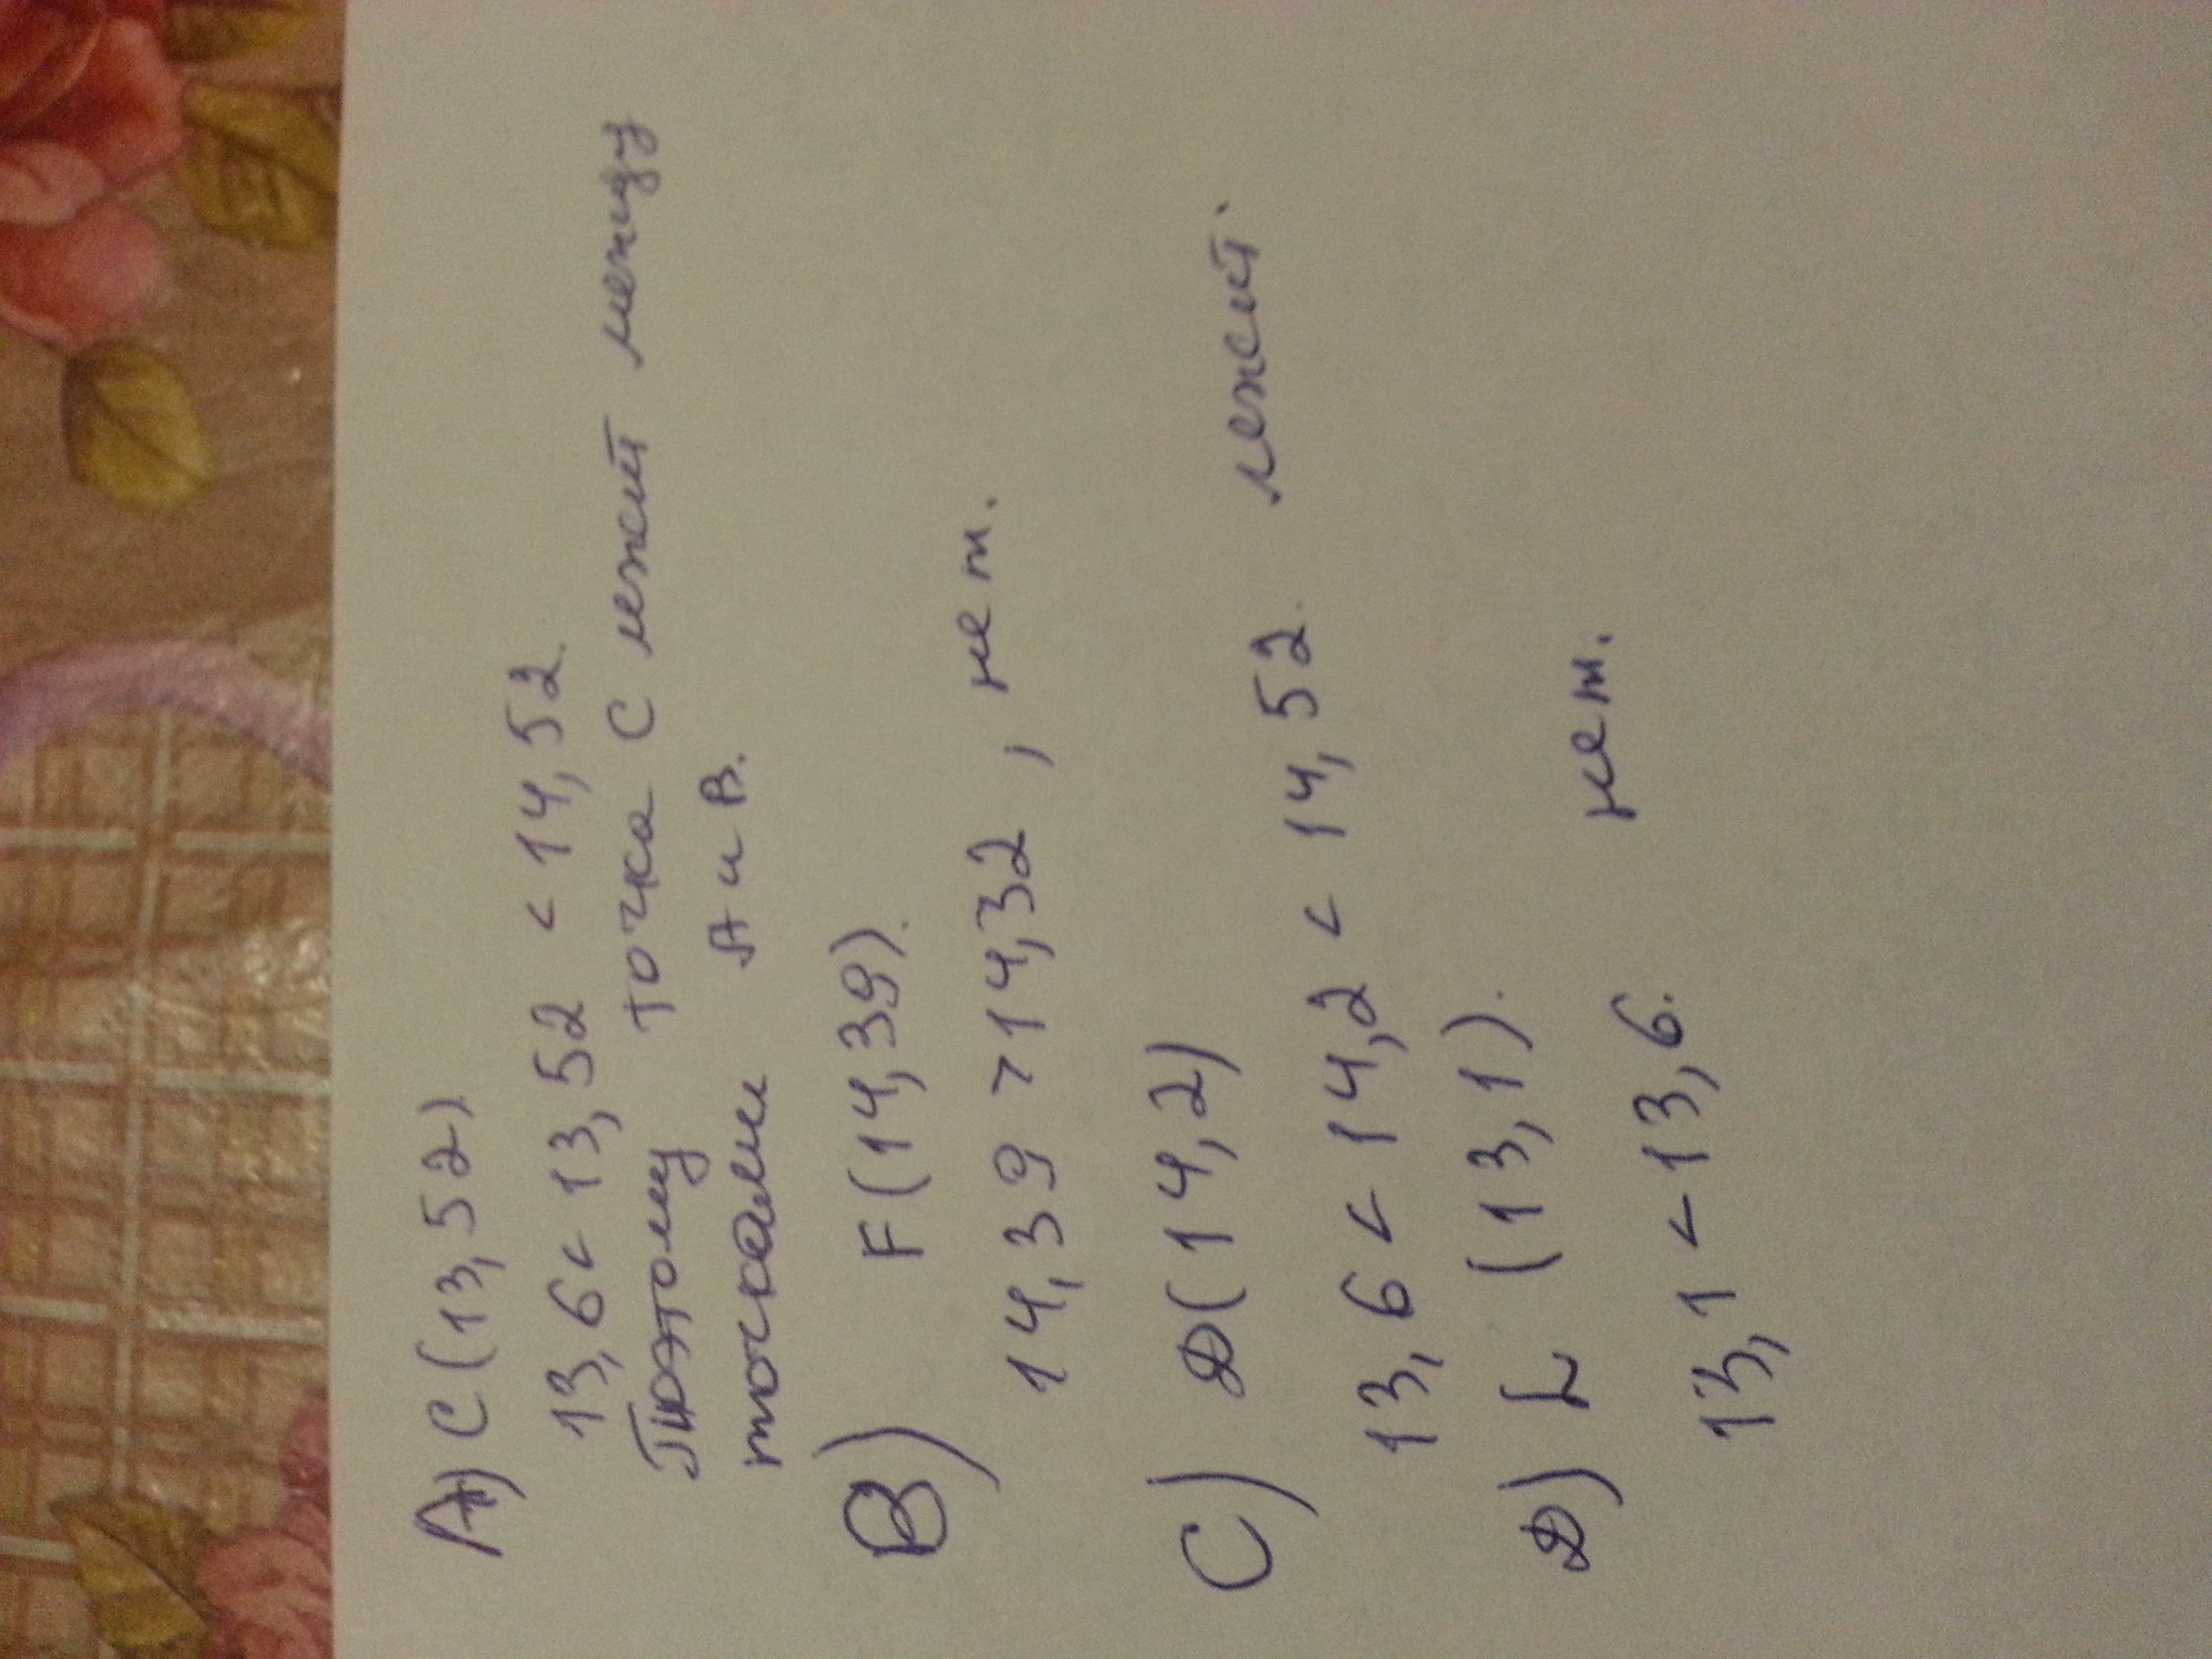 A) C (13,52)
13,6 < 13,52 < 14,52.
Поэтому точка С лежит между
точками А и В.
B) F (14,39).
14,39 > 14,32, нет.
C) D (14,2)
13,6 < 14,2 < 14,52. лежит.
D) L (13,1).
13,1 < 13,6. нет.